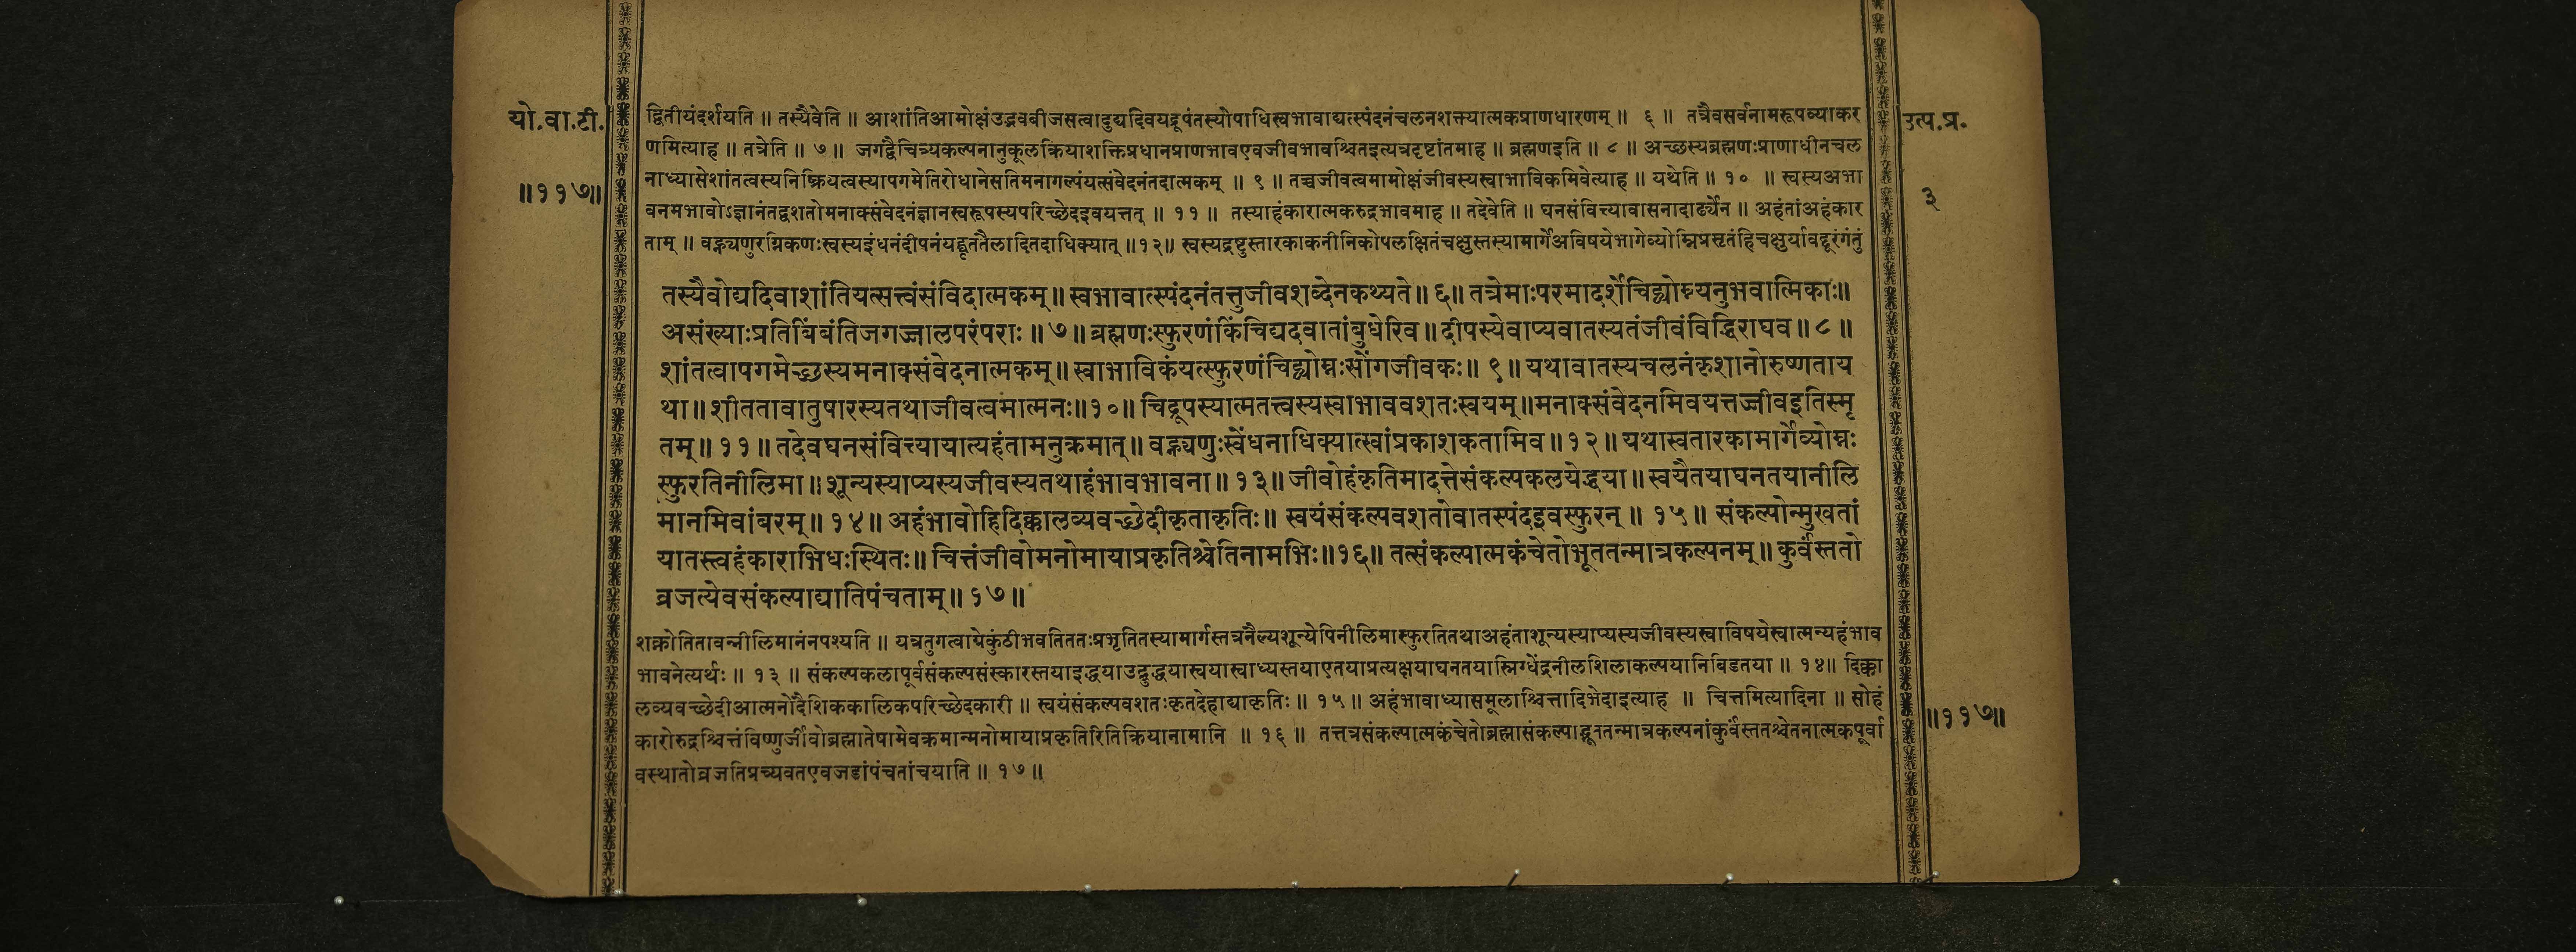 यो.वा.टी.
॥११७॥
द्वितीयंदर्शयति ॥ तस्यैवेति ॥ आशांतिआमोक्षंउद्भवबीजसत्वादुद्यदिवयद्रूपंतस्योपाधिस्वभावाद्यत्स्पंदनंचलनशक्त्यात्मकप्राणधारणम् ॥ ६ ॥ तत्रैवसर्वनामरूपव्याकर
णमित्याह ॥ तत्रेति ॥ ७ ॥ जगद्वैचित्र्यकल्पनानुकूलक्रियाशक्तिप्रधानप्राणभावएवजीवभावश्चितइत्यत्रदृष्टांतमाह ॥ ब्रह्मणइति ॥ ८ ॥ अच्छस्यब्रह्मणःप्राणाधीनचल
नाध्यासेशांतत्वस्यनिष्क्रियत्वस्यापगमेतिरोधानेसतिमनागल्पंयत्संवेदनंतदात्मकम् ॥ ९ ॥ तच्चजीवत्वमामोक्षंजीवस्यस्वाभाविकमिवेत्याह ॥ यथेति ॥ १० ॥ स्वस्यअभा
वनमभावोऽज्ञानंतद्वशतोमनाक्संवेदनंज्ञानस्वरूपस्यपरिच्छेदइवयत्तत् ॥ ११ ॥ तस्याहंकारात्मकरुद्रभावमाह ॥ तदेवेति ॥ घनसंवित्त्यावासनादार्ढ्येन ॥ अहंतांअहंकार
ताम् ॥ वह्न्यणुरग्निकणःस्वस्यइंधनंदीपनंयद्घृततैलादितदाधिक्यात् ॥१२॥ स्वस्यद्रष्टुस्तारकाकनीनिकोपलक्षितंचक्षुस्तस्यामार्गेअविषयेभागेव्योम्निप्रसृतंहिचक्षुर्यावद्दूरंगंतुं
तस्यैवोद्यदिवाशांतियत्सत्त्वंसंविदात्मकम् ॥ स्वभावात्स्पंदनंतत्तुजीवशब्देनकथ्यते ॥ ६ ॥ तत्रेमाःपरमादर्शेचिद्व्योम्न्यनुभवात्मिकाः ॥
असंख्याःप्रतिबिंबंतिजगज्जालपरंपराः ॥ ७ ॥ ब्रह्मणःस्फुरणंकिंचिद्यदवातांबुधेरिव ॥ दीपस्येवाप्यवातस्यतंजीवंविद्धिराघव ॥ ८ ॥
शांतत्वापगमेच्छस्यमनाक्संवेदनात्मकम् ॥ स्वाभाविकंयत्स्फुरणंचिद्व्योम्नःसोंगजीवकः ॥ ९ ॥ यथावातस्यचलनंकृशानोरुष्णताय
था ॥ शीततावातुषारस्यतथाजीवत्वमात्मनः ॥१०॥ चिद्रूपस्यात्मतत्त्वस्यस्वाभाववशतःस्वयम् ॥ मनाक्संवेदनमिवयत्तज्जीवइतिस्मृ
तम् ॥ ११ ॥ तदेवघनसंवित्त्यायात्यहंतामनुक्रमात् ॥ वह्न्यणुःस्वेंधनाधिक्यात्स्वांप्रकाशकतामिव ॥१२॥ यथास्वतारकामार्गेव्योम्नः
स्फुरतिनीलिमा ॥ शून्यस्याप्यस्यजीवस्यतथाहंभावभावना ॥ १३ ॥ जीवोहंकृतिमादत्तेसंकल्पकलयेद्धया ॥ स्वयैतयाघनतयानीलि
मानमिवांबरम् ॥ १४ ॥ अहंभावोहिदिक्कालव्यवच्छेदीकृताकृतिः ॥ स्वयंसंकल्पवशतोवातस्पंदइवस्फुरन् ॥ १५ ॥ संकल्पोन्मुखतां
यातस्त्वहंकाराभिधःस्थितः ॥ चित्तंजीवोमनोमायाप्रकृतिश्चेतिनामभिः ॥१६॥ तत्संकल्पात्मकंचेतोभूततन्मात्रकल्पनम् ॥ कुर्वंस्ततो
व्रजत्येवसंकल्पाद्यातिपंचताम् ॥ १७ ॥
शक्नोतितावन्नीलिमानंनपश्यति ॥ यत्रतुगत्वाग्रेकुंठीभवतिततःप्रभृतितस्यामार्गस्तत्रनैल्यशून्येपिनीलिमास्फुरतितथाअहंताशून्यस्याप्यस्यजीवस्यस्वाविषयेस्वात्मन्यहंभाव
भावनेत्यर्थः ॥ १३ ॥ संकल्पकलापूर्वसंकल्पसंस्कारस्तयाइद्धयाउद्बुद्धयास्वयास्वाध्यस्तयाएतयाप्रत्यक्षयाघनतयास्निग्धेंद्रनीलशिलाकल्पयानिबिडतया ॥ १४॥ दिक्का
लव्यवच्छेदीआत्मनोदैशिककालिकपरिच्छेदकारी ॥ स्वयंसंकल्पवशतःकृतदेहाद्याकृतिः ॥ १५ ॥ अहंभावाध्यासमूलाश्चित्तादिभेदाइत्याह ॥ चित्तमित्यादिना ॥ सोहं
कारोरुद्रश्चित्तंविष्णुर्जीवोब्रह्मातेषामेवक्रमान्मनोमायाप्रकृतिरितिक्रियानामानि ॥ १६ ॥ तत्तत्रसंकल्पात्मकंचेतोब्रह्मासंकल्पाद्भूततन्मात्रकल्पनांकुर्वंस्ततश्चेतनात्मकपूर्वा
वस्थातोव्रजतिप्रच्यवतएवजडांपंचतांचयाति ॥ १७ ॥
उत्प.प्र.
३
॥११७॥